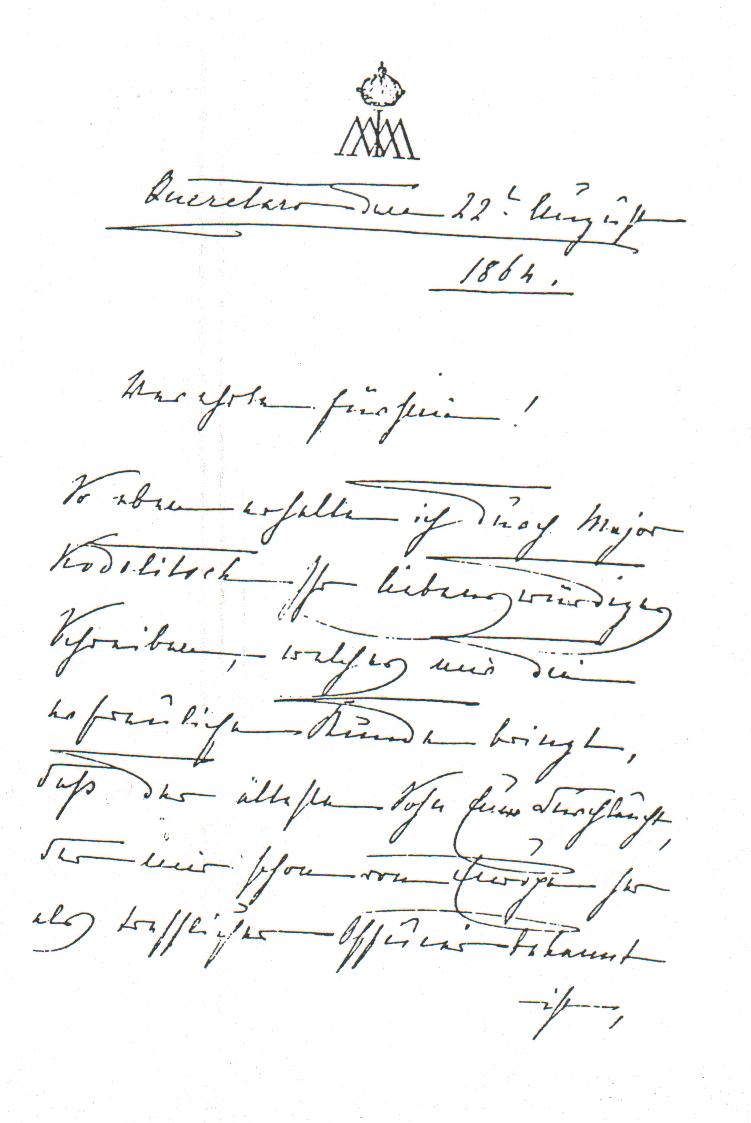 MIM
Queretaro den 22t August
1864.
Verehrte Fürstin!
So eben erhalte ich durch Major
Kodolitsch Ihr liebenswürdiges
Schreiben, welches mir die
erfreuliche Kunde bringt,
daß der älteste Sohn Euer Durchlaucht,
der mir schon von Ewigem her
als trefflicher Offizier bekannt
ist,